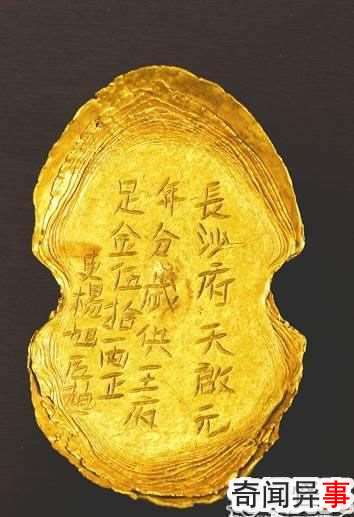 長沙府天啟元
年分歲供王府
足金伍拾両正
吏楊旭匠趙
奇闻异事